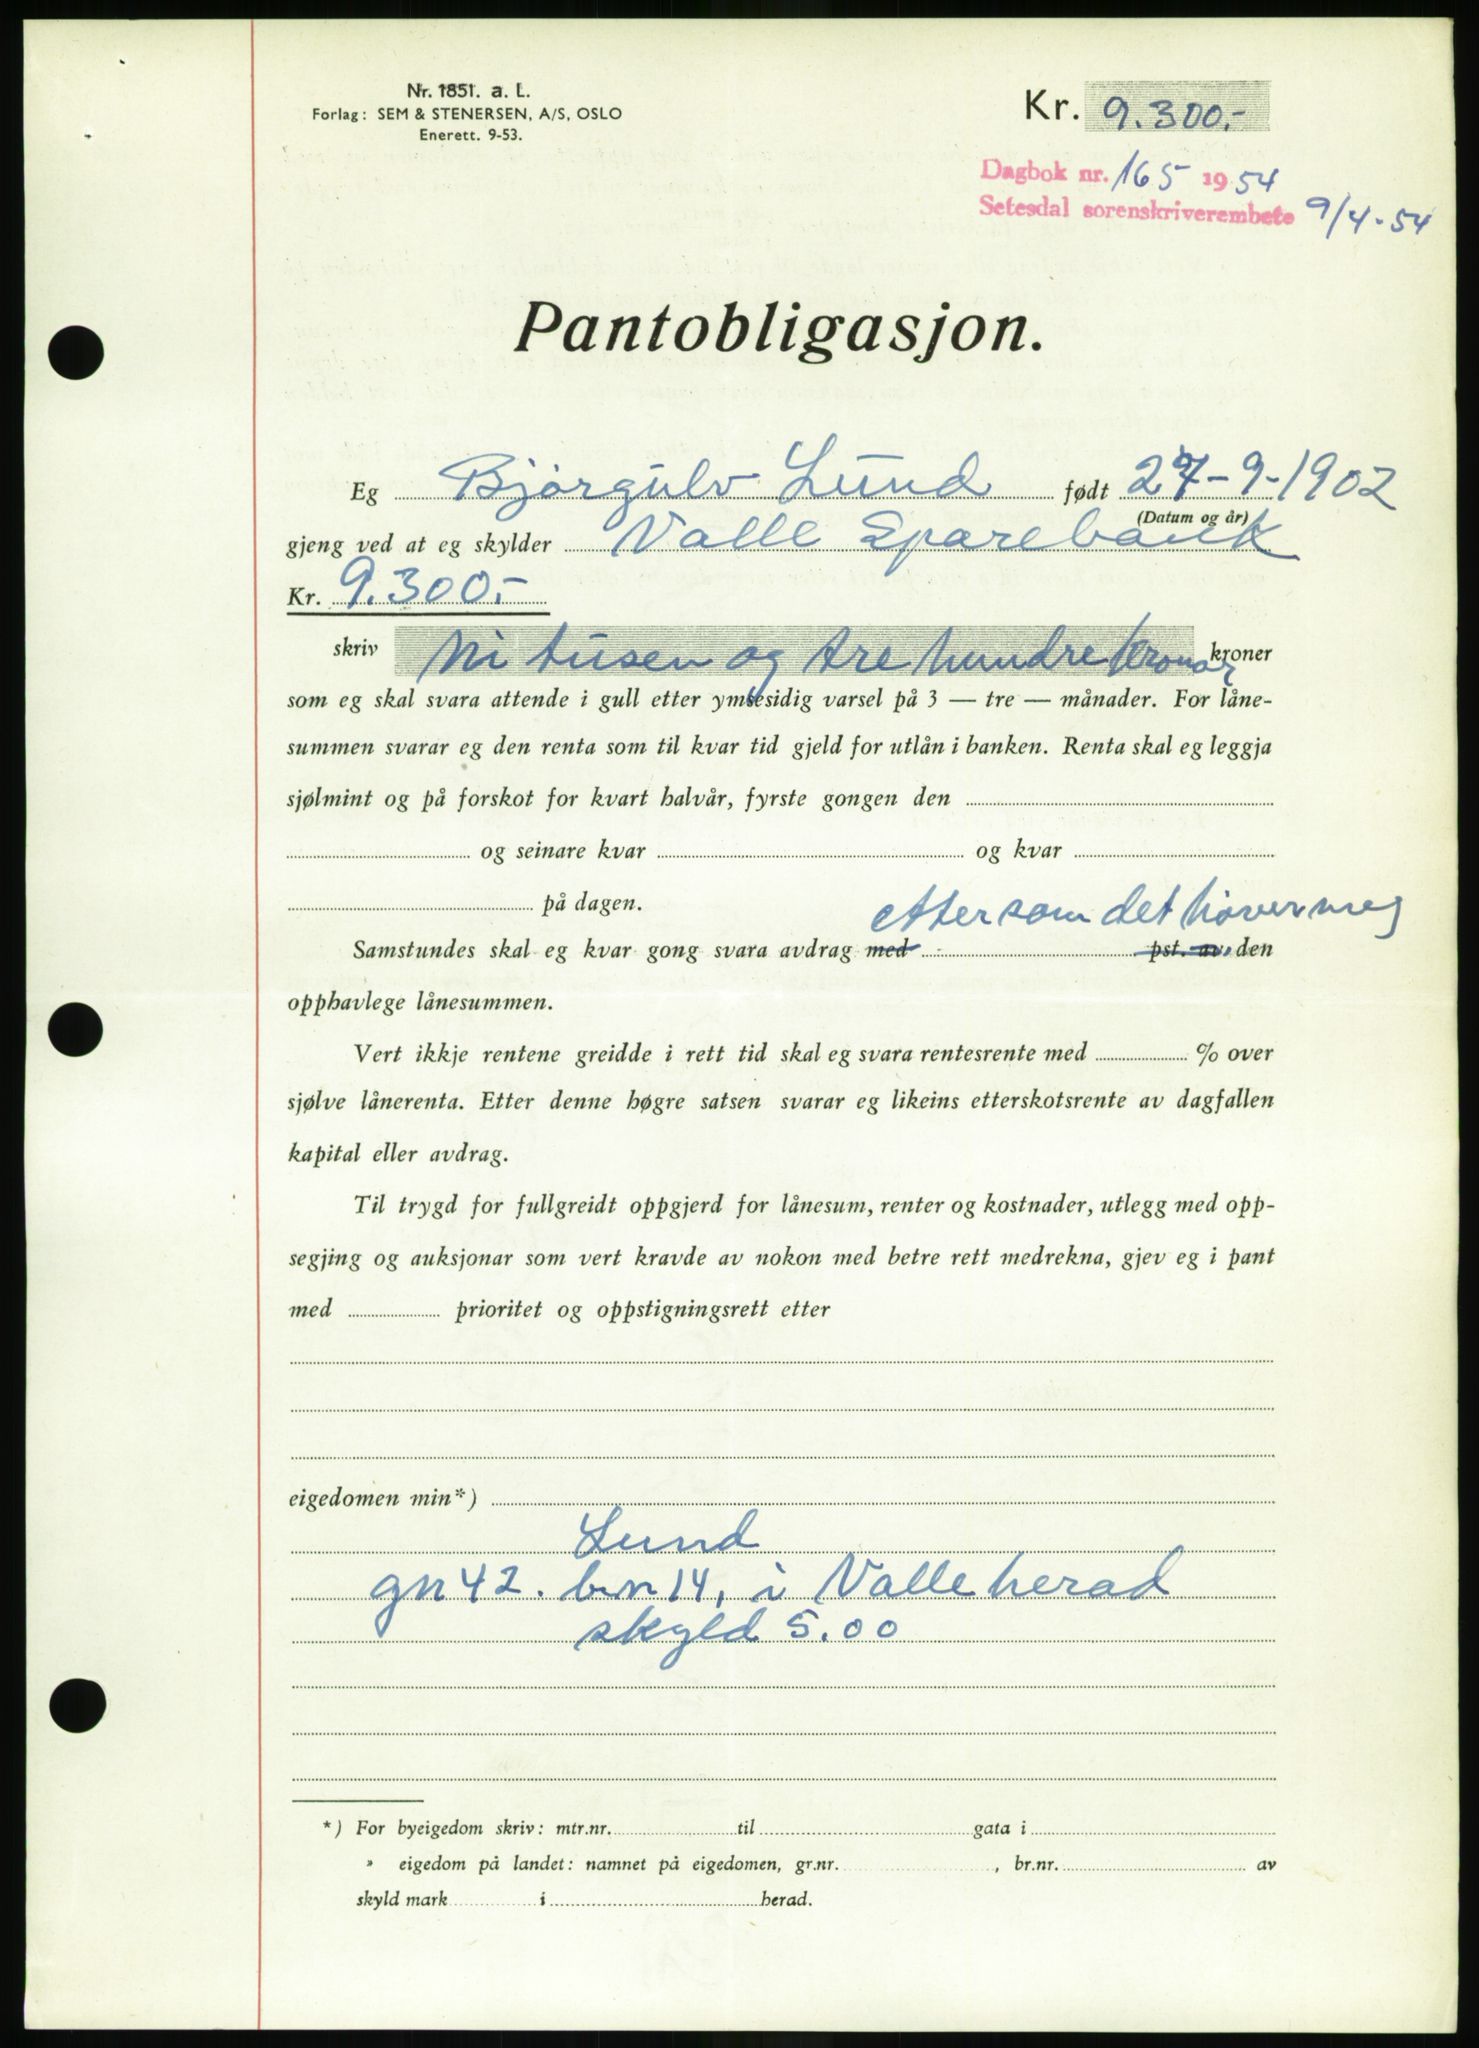 Nr. 1851. a. L.
Forlag: SEM & STENERSEN, A/S, OSLO
Enerett. 9-53.
Kr. 9.300.-
Dagbok nr. 165 1954
Setesdal sorenskriverembete 9/4-54
Pantobligasjon.
Eg Bjørgulv Lund født 27-9-1902
(Datum og år)
gjeng ved at eg skylder Valle Sparebank
Kr. 9.300.-
skriv Ni tusen og tre hundre kronar kroner
som eg skal svara attende i gull etter ymsesidig varsel på 3 — tre — månader. For låne-
summen svarar eg den renta som til kvar tid gjeld for utlån i banken. Renta skal eg leggja
sjølmint og på forskot for kvart halvår, fyrste gongen den
og seinare kvar og kvar
på dagen.
ettersom det høver meg
Samstundes skal eg kvar gong svara avdrag med pst. av den
opphavlege lånesummen.
Vert ikkje rentene greidde i rett tid skal eg svara rentesrente med % over
sjølve lånerenta. Etter denne høgre satsen svarar eg likeins etterskotsrente av dagfallen
kapital eller avdrag.
Til trygd for fullgreidt oppgjerd for lånesum, renter og kostnader, utlegg med opp-
segjing og auksjonar som vert kravde av nokon med betre rett medrekna, gjev eg i pant
med prioritet og oppstigningsrett etter
eigedomen min*)
Lund
gn 42. bn 14, i Valle herad
skyld 5.00
*) For byeigedom skriv: mtr.nr. til gata i
» eigedom på landet: namnet på eigedomen, gr.nr. , br.nr. av
skyld mark i herad.